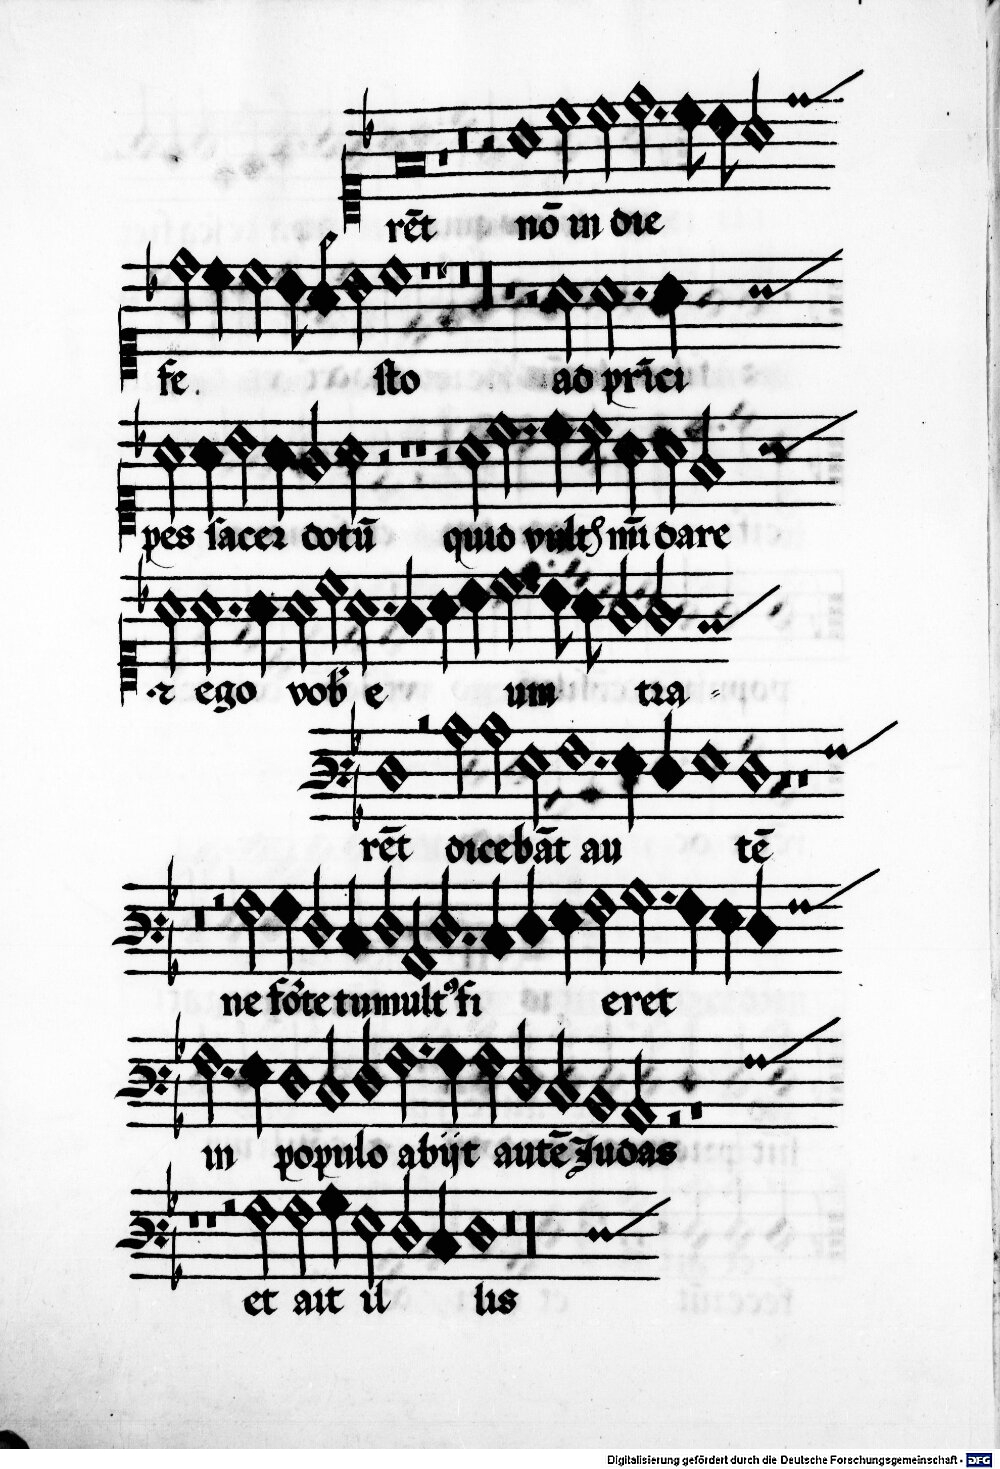 rēt nō in die
fe. sto ad prīci
pes sacer dotū quid vultꝭ mī dare
⁊ ego vob e um tra -
rēt dicebāt au tē
ne fōte tumultꝰ fi eret
in populo abijt autē Judas
et ait il lis
Digitalisierung gefördert durch die Deutsche Forschungsgemeinschaft - DFG